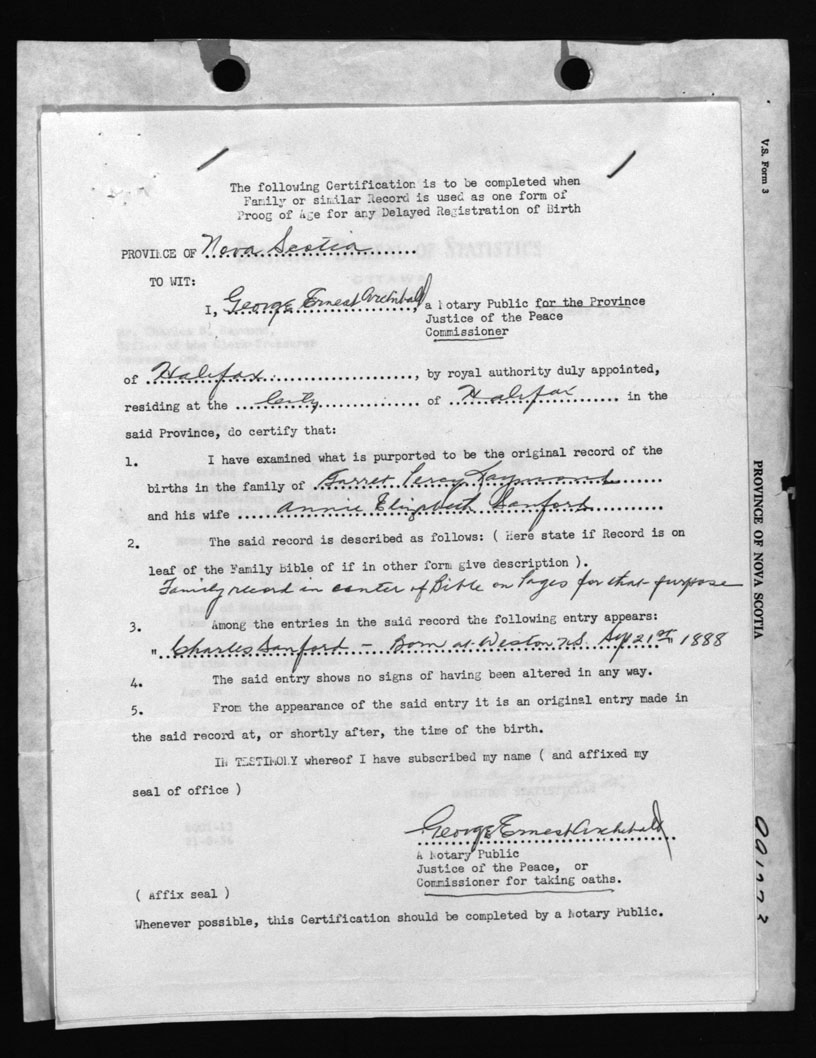 The following Certification is to be completed when
Family or similar Record is used as one form of
Proog of Age for any Delayed Registration of Birth
PROVINCE OF Nova Scotia
TO WIT:
I, George Ernest Archibald, a Notary Public for the Province
Justice of the Peace
Commissioner
of Halifax, by royal authority duly appointed,
residing at the City of Halifax in the
said Province, do certify that:
1. I have examined what is purported to be the original record of the
births in the family of Garret Percy Raymond
and his wife Annie Elizabeth Sanford
2. The said record is described as follows: ( Here state if Record is on
leaf of the Family Bible of if in other form give description ).
Family record in center of Bible on Pages for that purpose
3. Among the entries in the said record the following entry appears:
" Charles Sanford - Born at Weston N.S. Sep 21st, 1888
4. The said entry shows no signs of having been altered in any way.
5. From the appearance of the said entry it is an original entry made in
the said record at, or shortly after, the time of the birth.
IN TESTIMONY whereof I have subscribed my name ( and affixed my
seal of office )
George Ernest Archibald
A Notary Public
Justice of the Peace, or
Commissioner for taking oaths.
( Affix seal )
Whenever possible, this Certification should be completed by a Notary Public.
V.S. Form 3
PROVINCE OF NOVA SCOTIA